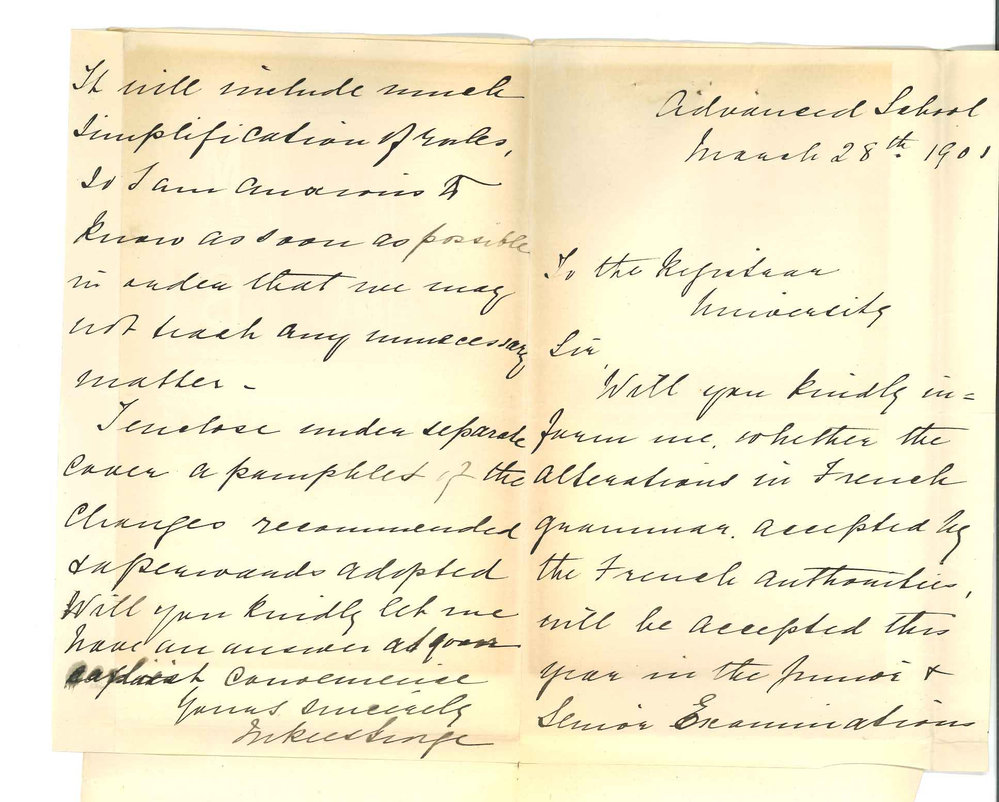 Advanced School
March 28th. 1901
To the Registrar
University
Sir,
Will you kindly in=
form me, whether the
alterations in French
grammar, accepted by
the French authorities,
will be accepted this
year in the Junior &
Senior Examinations
It will include much
simplification of rules,
so I am anxious to
know as soon as possible
in order that we may
not teach any unnecessary
matter -
I enclose under separate
cover a pamphlet of the
changes recommended
& afterwards adopted
Will you kindly let me
have an answer at your
earliest convenience
Yours sincerely